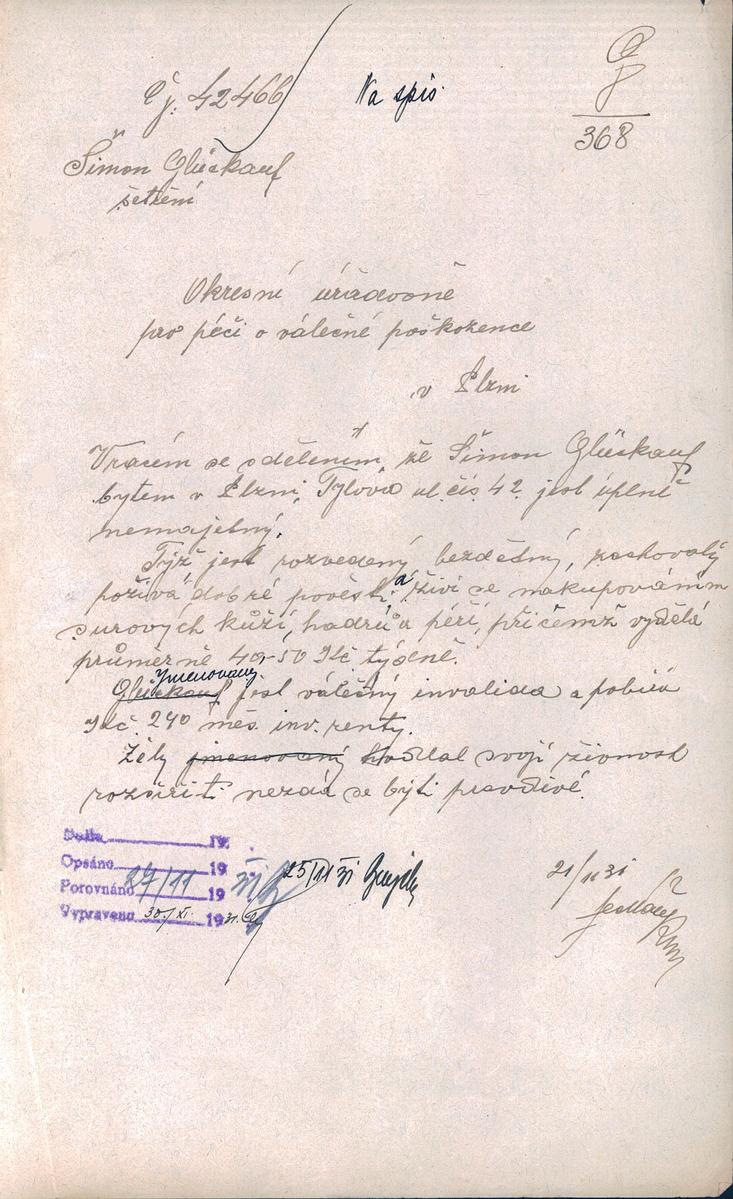 Čj: 42466
Na spis.
G
368
Šimon Glückauf
šetření
Okresní úřadovně
pro péči o válečné poškozence
v Plzni
Vracím se sdělením, že Šimon Glückauf
bytem v Plzni, Tylova ul. čís. 42. jest úplně
nemajetný.
Týž jest rozvedený bezdětný, zachovalý
požívá dobré pověsti a živí se nakupováním
surových kůží, hadrů a peří, při čemž vydělá
průměrně 40-50 Kč týdně.
Jmenovaný
Glückauf jest válečný invalida a pobírá
Kč 240 měs. inv. renty.
Žeby jmenovaný hodlal svoji živnost
rozšířiti nezdá se býti pravdivé.
Došlo 19
Opsáno 19
Porovnáno 27/11 19 31
Vypraveno 30/XI. 1931.
25/11 31
21/11 31